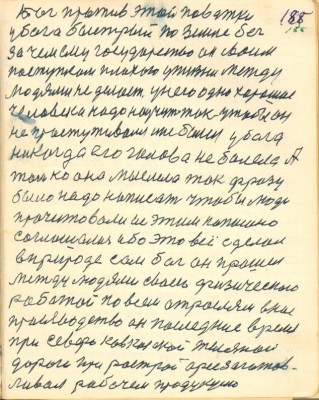 188
188
Бог против этой повятки
у бога быстрый по земле бег
зачем ему государство он своим
поступком плохого у жизни между
людями не делает у него одно хорошее
человека надо научить так чтобы он
не проступивался или бывш у бога
никогда его голова не болела А
только она мыслила так фразу
было надо написать чтобы люди
прочитовали и с этим написано
соглошался ибо это всё сделал
в природе сам бог он прошел
между людями своею физическою
работой по всем отраслям в
производство он последние время
при Северо Кавказской железной
дороги при рабочем
продукцию